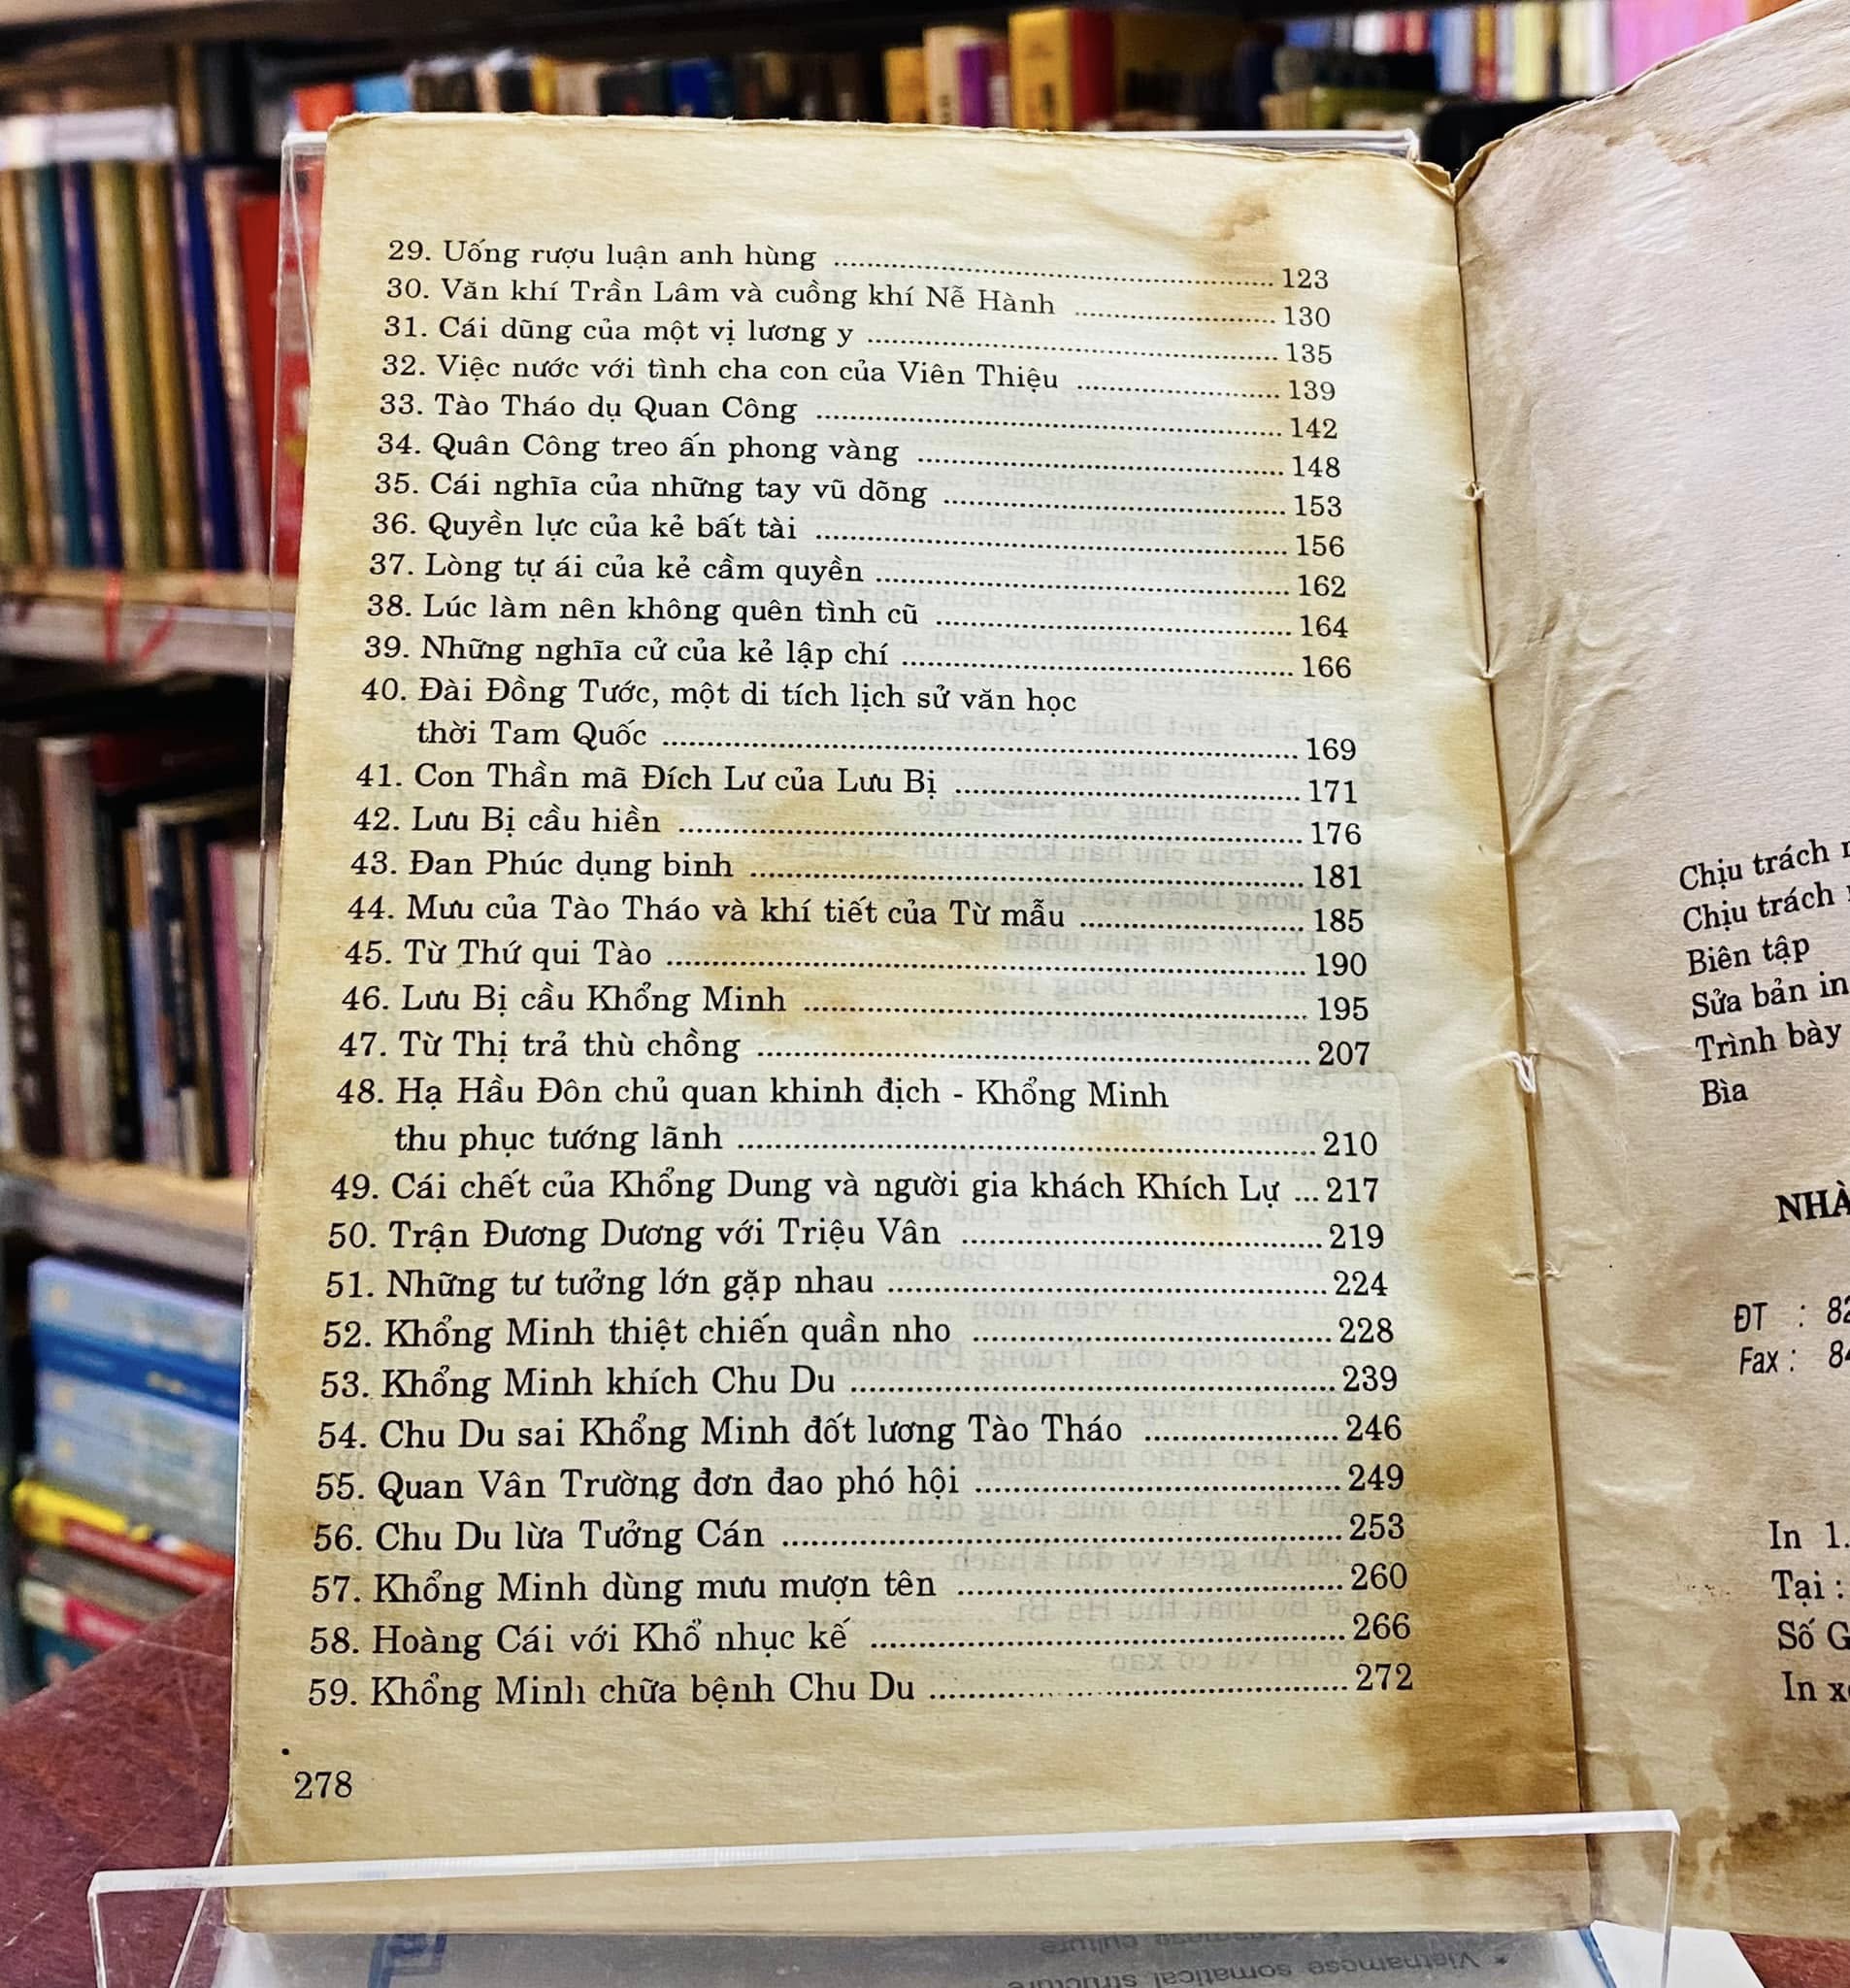 29. Uống rượu luận anh hùng ........ 123
30. Văn khí Trần Lâm và cuồng khí Nễ Hành ........ 130
31. Cái dũng của một vị lương y ........ 135
32. Việc nước với tình cha con của Viên Thiệu ........ 139
33. Tào Tháo dụ Quan Công ........ 142
34. Quân Công treo ấn phong vàng ........ 148
35. Cái nghĩa của những tay vũ dõng ........ 153
36. Quyền lực của kẻ bất tài ........ 156
37. Lòng tự ái của kẻ cầm quyền ........ 162
38. Lúc làm nên không quên tình cũ ........ 164
39. Những nghĩa cử của kẻ lập chí ........ 166
40. Đài Đồng Tước, một di tích lịch sử văn học
thời Tam Quốc ........ 169
41. Con Thần mã Đích Lư của Lưu Bị ........ 171
42. Lưu Bị cầu hiền ........ 176
43. Đan Phúc dụng binh ........ 181
44. Mưu của Tào Tháo và khí tiết của Từ mẫu ........ 185
45. Từ Thứ qui Tào ........ 190
46. Lưu Bị cầu Khổng Minh ........ 195
47. Từ Thị trả thù chồng ........ 207
48. Hạ Hầu Đôn chủ quan khinh địch - Khổng Minh
thu phục tướng lãnh ........ 210
49. Cái chết của Khổng Dung và người gia khách Khích Lự ... 217
50. Trận Đương Dương với Triệu Vân ........ 219
51. Những tư tưởng lớn gặp nhau ........ 224
52. Khổng Minh thiệt chiến quần nho ........ 228
53. Khổng Minh khích Chu Du ........ 239
54. Chu Du sai Khổng Minh đốt lương Tào Tháo ........ 246
55. Quan Vân Trường đơn đao phó hội ........ 249
56. Chu Du lừa Tưởng Cán ........ 253
57. Khổng Minh dùng mưu mượn tên ........ 260
58. Hoàng Cái với Khổ nhục kế ........ 266
59. Khổng Minh chữa bệnh Chu Du ........ 272
278
Chịu trách
Chịu trách
Biên tập
Sửa bản in
Trình bày
Bìa
NHÀ
ĐT : 82
Fax : 84
In 1.
Tại :
Số G
In x
* Vietnamese somatical structure
culture